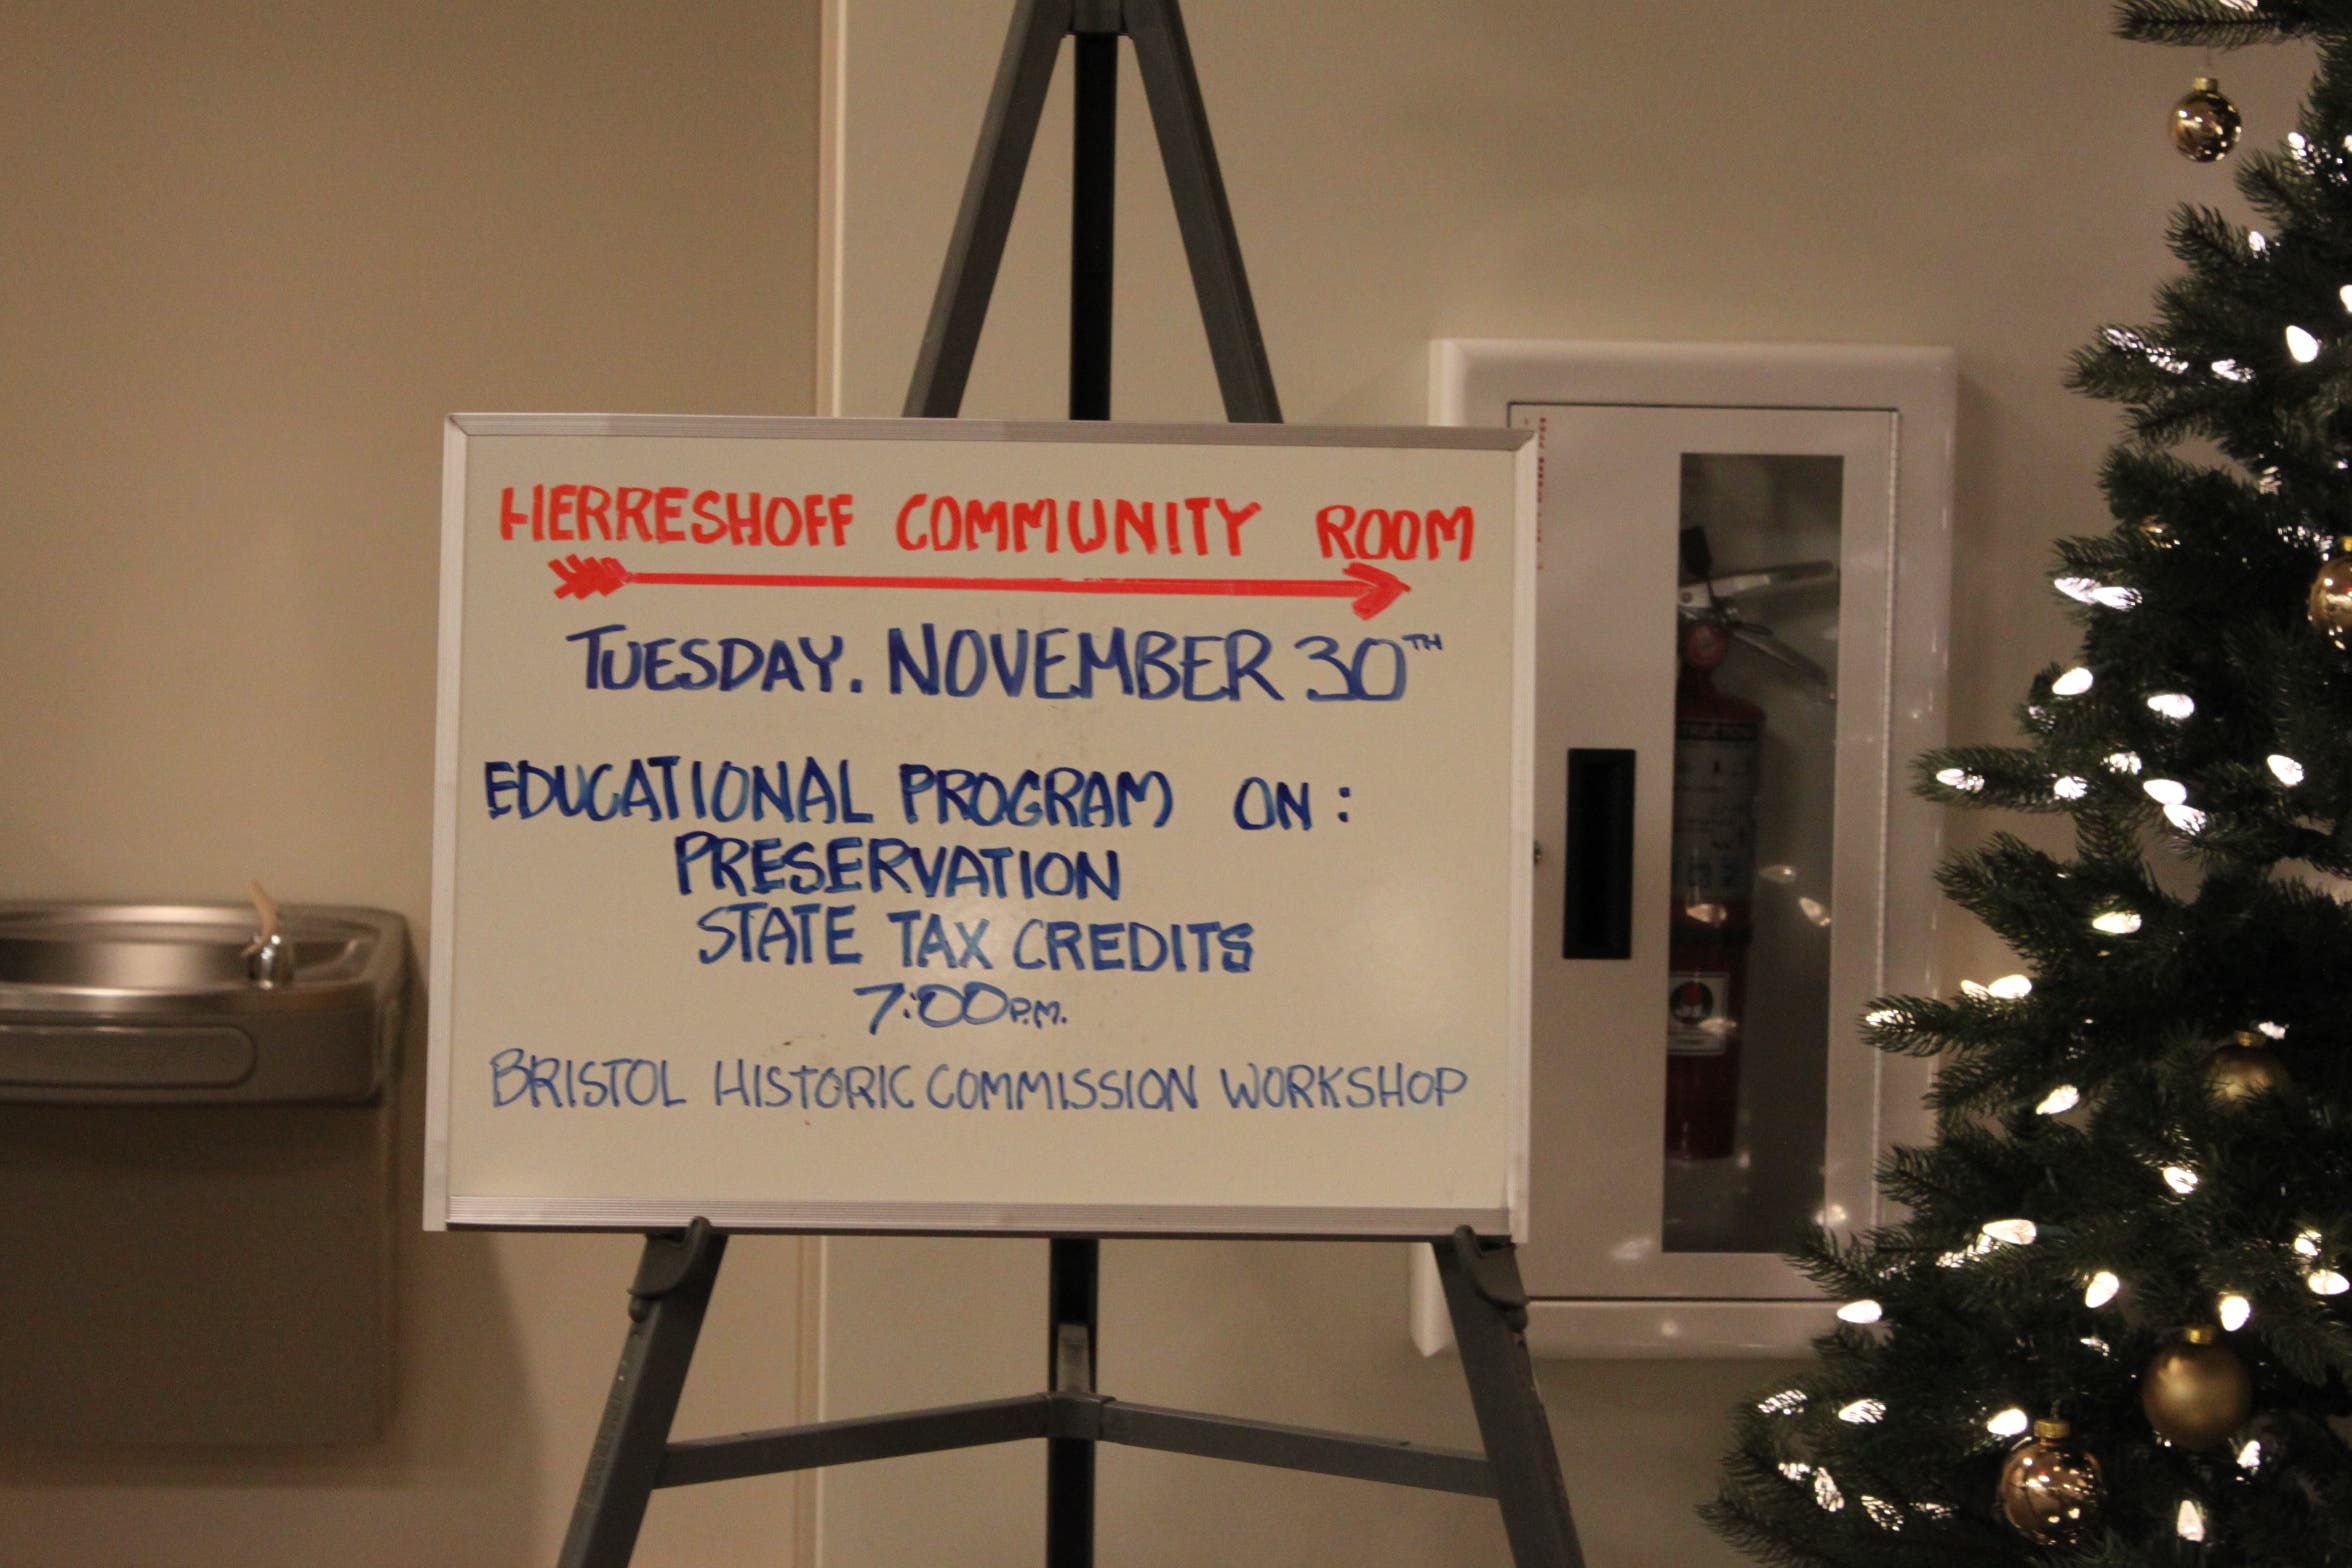 HERRESHOFF COMMUNITY ROOM
TUESDAY. NOVEMBER 30TH
EDUCATIONAL PROGRAM ON:
PRESERVATION
STATE TAX CREDITS
7:00 P.M.
BRISTOL HISTORIC COMMISSION WORKSHOP